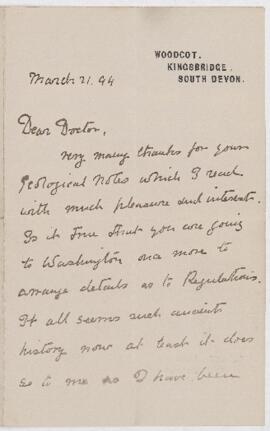 WOODCOT.
KINGSBRIDGE.
SOUTH DEVON.
March 21. 94
Dear Doctor,
Very many thanks for your
Geological Notes which I read
with much pleasure and interest.
Is it True that you are going
to Washington once more to
arrange details as to Regulations.
It all seems such ancient
history now at least it does
so to me as I have been